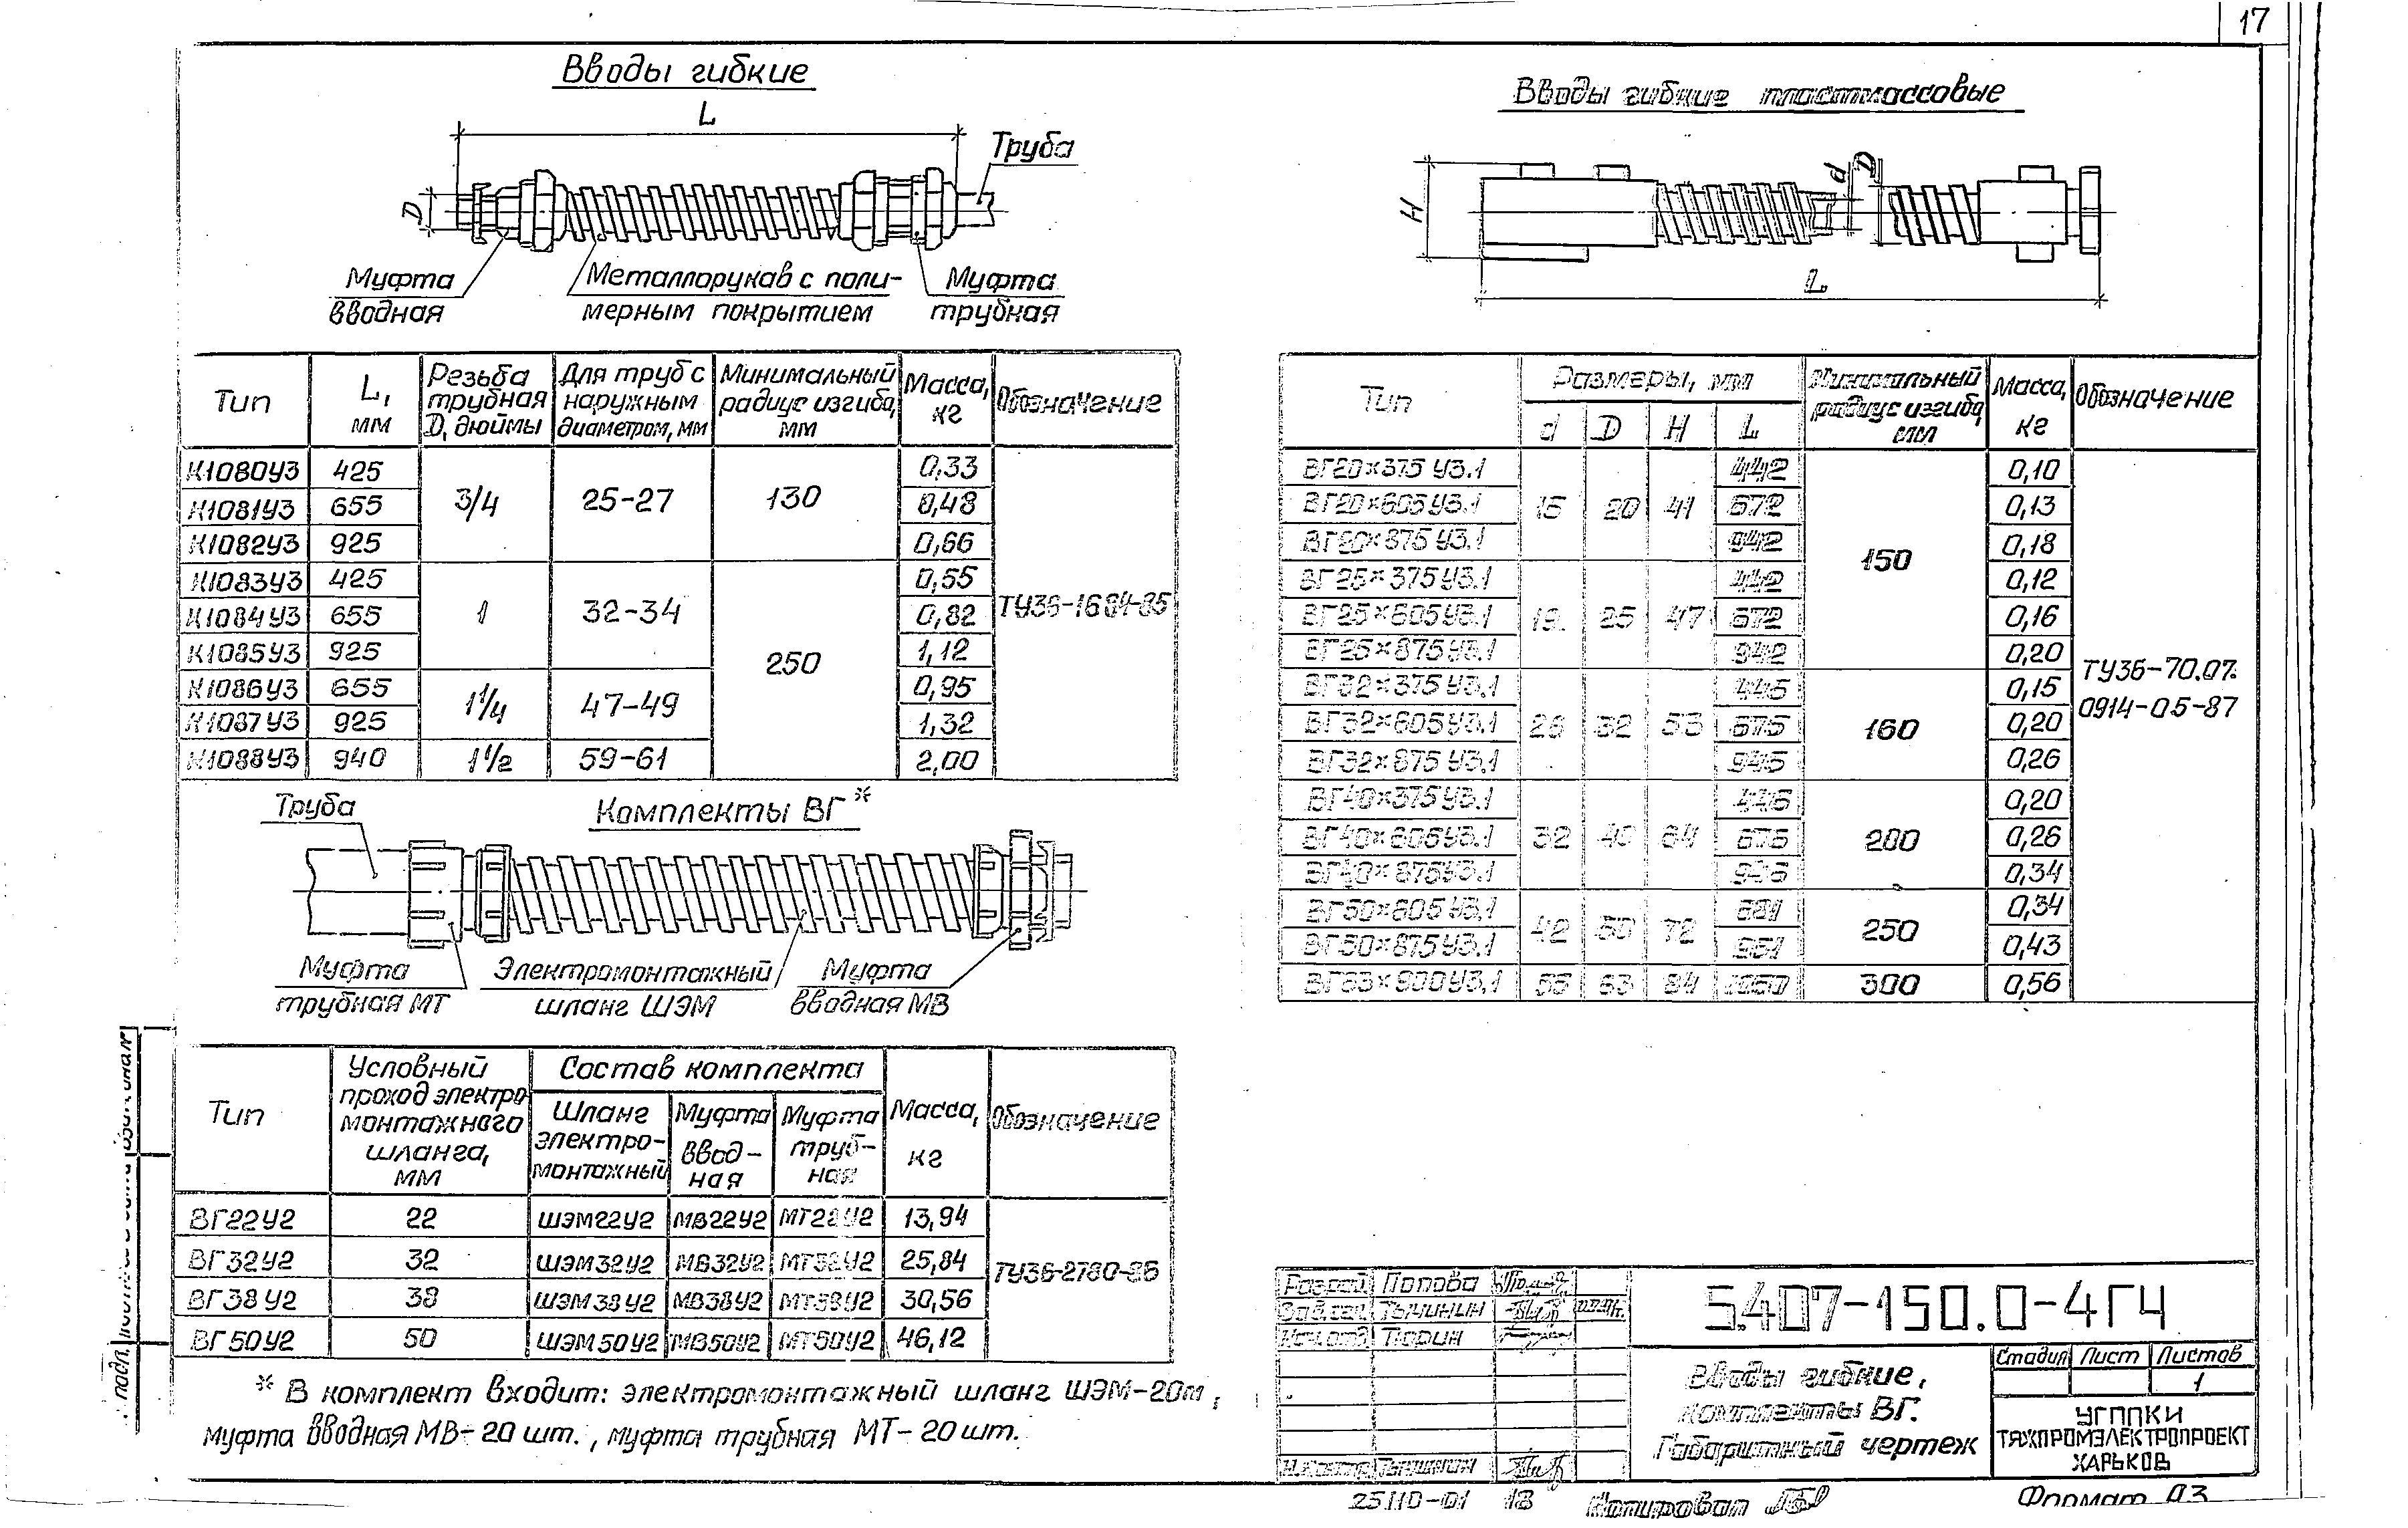 17
Вводы гибкие
L
Труба
D
Муфта вводная
Металлорукав с поли-
мерным покрытием
Муфта трубная
Тип | L, мм | Резьба трубная D, дюймы | Для труб с наружным диаметром, мм | Минимальный радиус изгиба, мм | Масса, кг | Обозначение
К1080У3 | 425 | 3/4 | 25-27 | 130 | 0,33 | ТУ36-1684-85
К1081У3 | 655 | 0,48
К1082У3 | 925 | 0,66
К1083У3 | 425 | 1 | 32-34 | 250 | 0,55
К1084У3 | 655 | 0,82
К1085У3 | 925 | 1,12
К1086У3 | 655 | 1¼ | 47-49 | 0,95
К1087У3 | 925 | 1,32
К1088У3 | 940 | 1½ | 59-61 | 2,00
Комплекты ВГ*
Труба
Муфта трубная МТ
Электромонтажный шланг ШЭМ
Муфта вводная МВ
Тип | Условный проход электро монтажного шланга, мм | Состав комплекта | Масса, кг | Обозначение
Шланг электро- монтажный | Муфта ввод- ная | Муфта труб- ная
ВГ22У2 | 22 | ШЭМ22У2 | МВ22У2 | МТ22У2 | 13,94 | ТУ36-2780-85
ВГ32У2 | 32 | ШЭМ32У2 | МВ32У2 | МТ32У2 | 25,84
ВГ38У2 | 38 | ШЭМ38У2 | МВ38У2 | МТ38У2 | 30,56
ВГ50У2 | 50 | ШЭМ50У2 | МВ50У2 | МТ50У2 | 46,12
* В комплект входит: электромонтажный шланг ШЭМ-20м,
муфта вводная МВ-20 шт., муфта трубная МТ-20 шт.
Вводы гибкие пластмассовые
H
d
D
L
Тип | Размеры, мм | Минимальный радиус изгиба мм | Масса, кг | Обозначение
d | D | H | L
ВГ20×375У3.1 | 15 | 20 | 41 | 442 | 150 | 0,10 | ТУ36-70.07. 0914-05-87
ВГ20×605У3.1 | 672 | 0,13
ВГ20×875У3.1 | 942 | 0,18
ВГ25×375У3.1 | 19 | 25 | 47 | 442 | 0,12
ВГ25×605У3.1 | 672 | 0,16
ВГ25×875У3.1 | 942 | 0,20
ВГ32×375У3.1 | 26 | 32 | 53 | 445 | 160 | 0,15
ВГ32×605У3.1 | 675 | 0,20
ВГ32×875У3.1 | 945 | 0,26
ВГ40×375У3.1 | 32 | 40 | 64 | 446 | 200 | 0,20
ВГ40×605У3.1 | 676 | 0,26
ВГ40×875У3.1 | 946 | 0,34
ВГ50×605У3.1 | 42 | 50 | 72 | 681 | 250 | 0,34
ВГ50×875У3.1 | 951 | 0,43
ВГ63×900У3.1 | 55 | 63 | 84 | 300 | 0,56
Разраб | Попова
Зав.гр | Тычинин
Нач.отд | Тюрин
Н.контр | Тычинин
5.407-150.0-4ГЧ
Вводы гибкие,
комплекты ВГ.
Габаритный чертеж
Стадия | Лист | Листов
1
УГППКИ
ТЯЖПРОМЭЛЕКТРОПРОЕКТ
ХАРЬКОВ
25110-01 18 Копировал
Формат А3
подл.